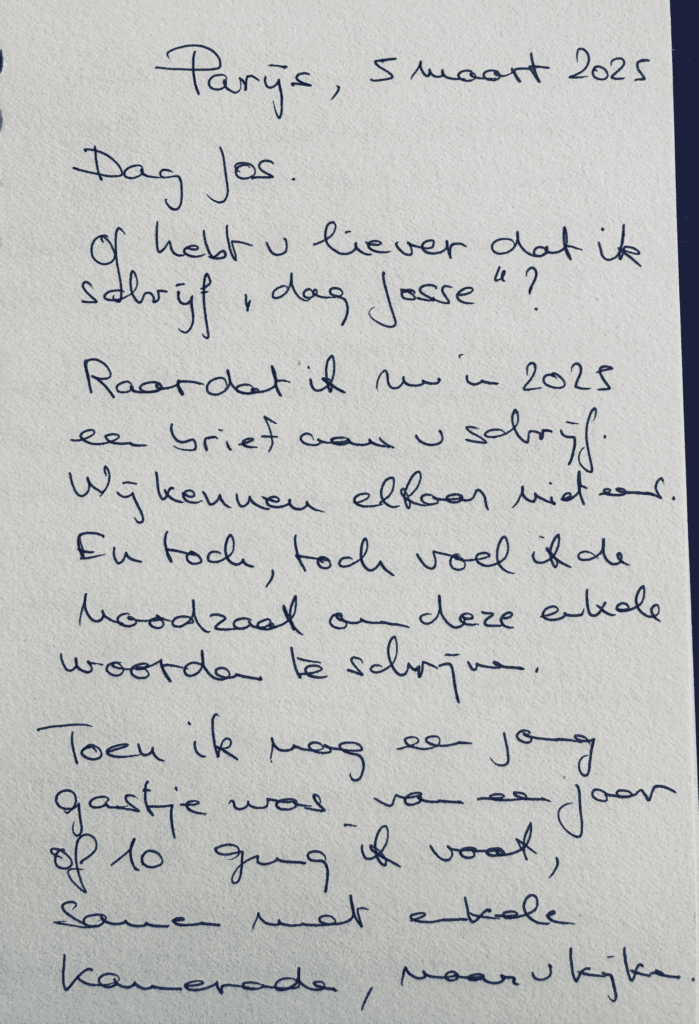 Parijs, 5 maart 2025
Dag Jos.
Of hebt u liever dat ik
schrijf „dag Josse“?
Raar dat ik nu in 2025
een brief aan u schrijf.
Wij kennen elkaar niet eens.
En toch, toch voel ik de
noodzaak om deze enkele
woorden te schrijven.
Toen ik nog een jong
gastje was van een jaar
of 10 ging ik vaak,
samen met enkele
kameraden, naar u kijken.